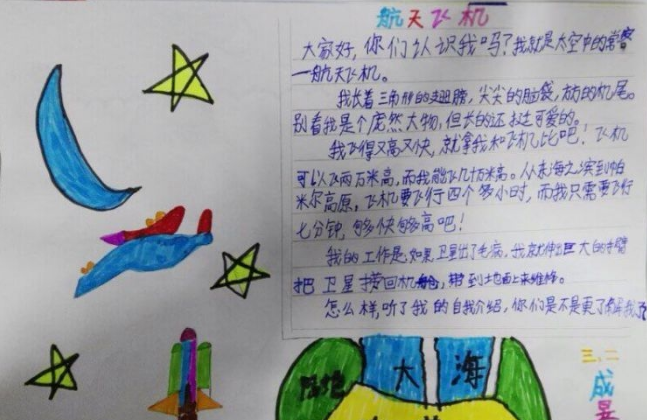 航天飞机
大家好,你们认识我吗?我就是太空中的常客
一航天飞机。
我长着三角形的翅膀,尖尖的脑袋,方方的机尾。
别看我是个庞然大物,但长的还挺可爱的。
我飞得又高又快,就拿我和飞机比吧!飞机
可以飞两万米高,而我能飞几十万米高。从东海之滨到帕
米尔高原,飞机要飞行四个多小时,而我只需要飞行
七分钟,够快够高吧!
我的工作是,如果卫星出了毛病,我就伸出巨大的手臂
把卫星捞回机舱,带到地面上来维修。
怎么样,听了我的自我介绍,你们是不是更了解我了
陆地
大海
三、二
成